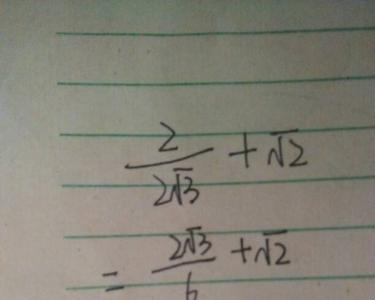 2/2√3 + √2
= 2√3/6 + √2